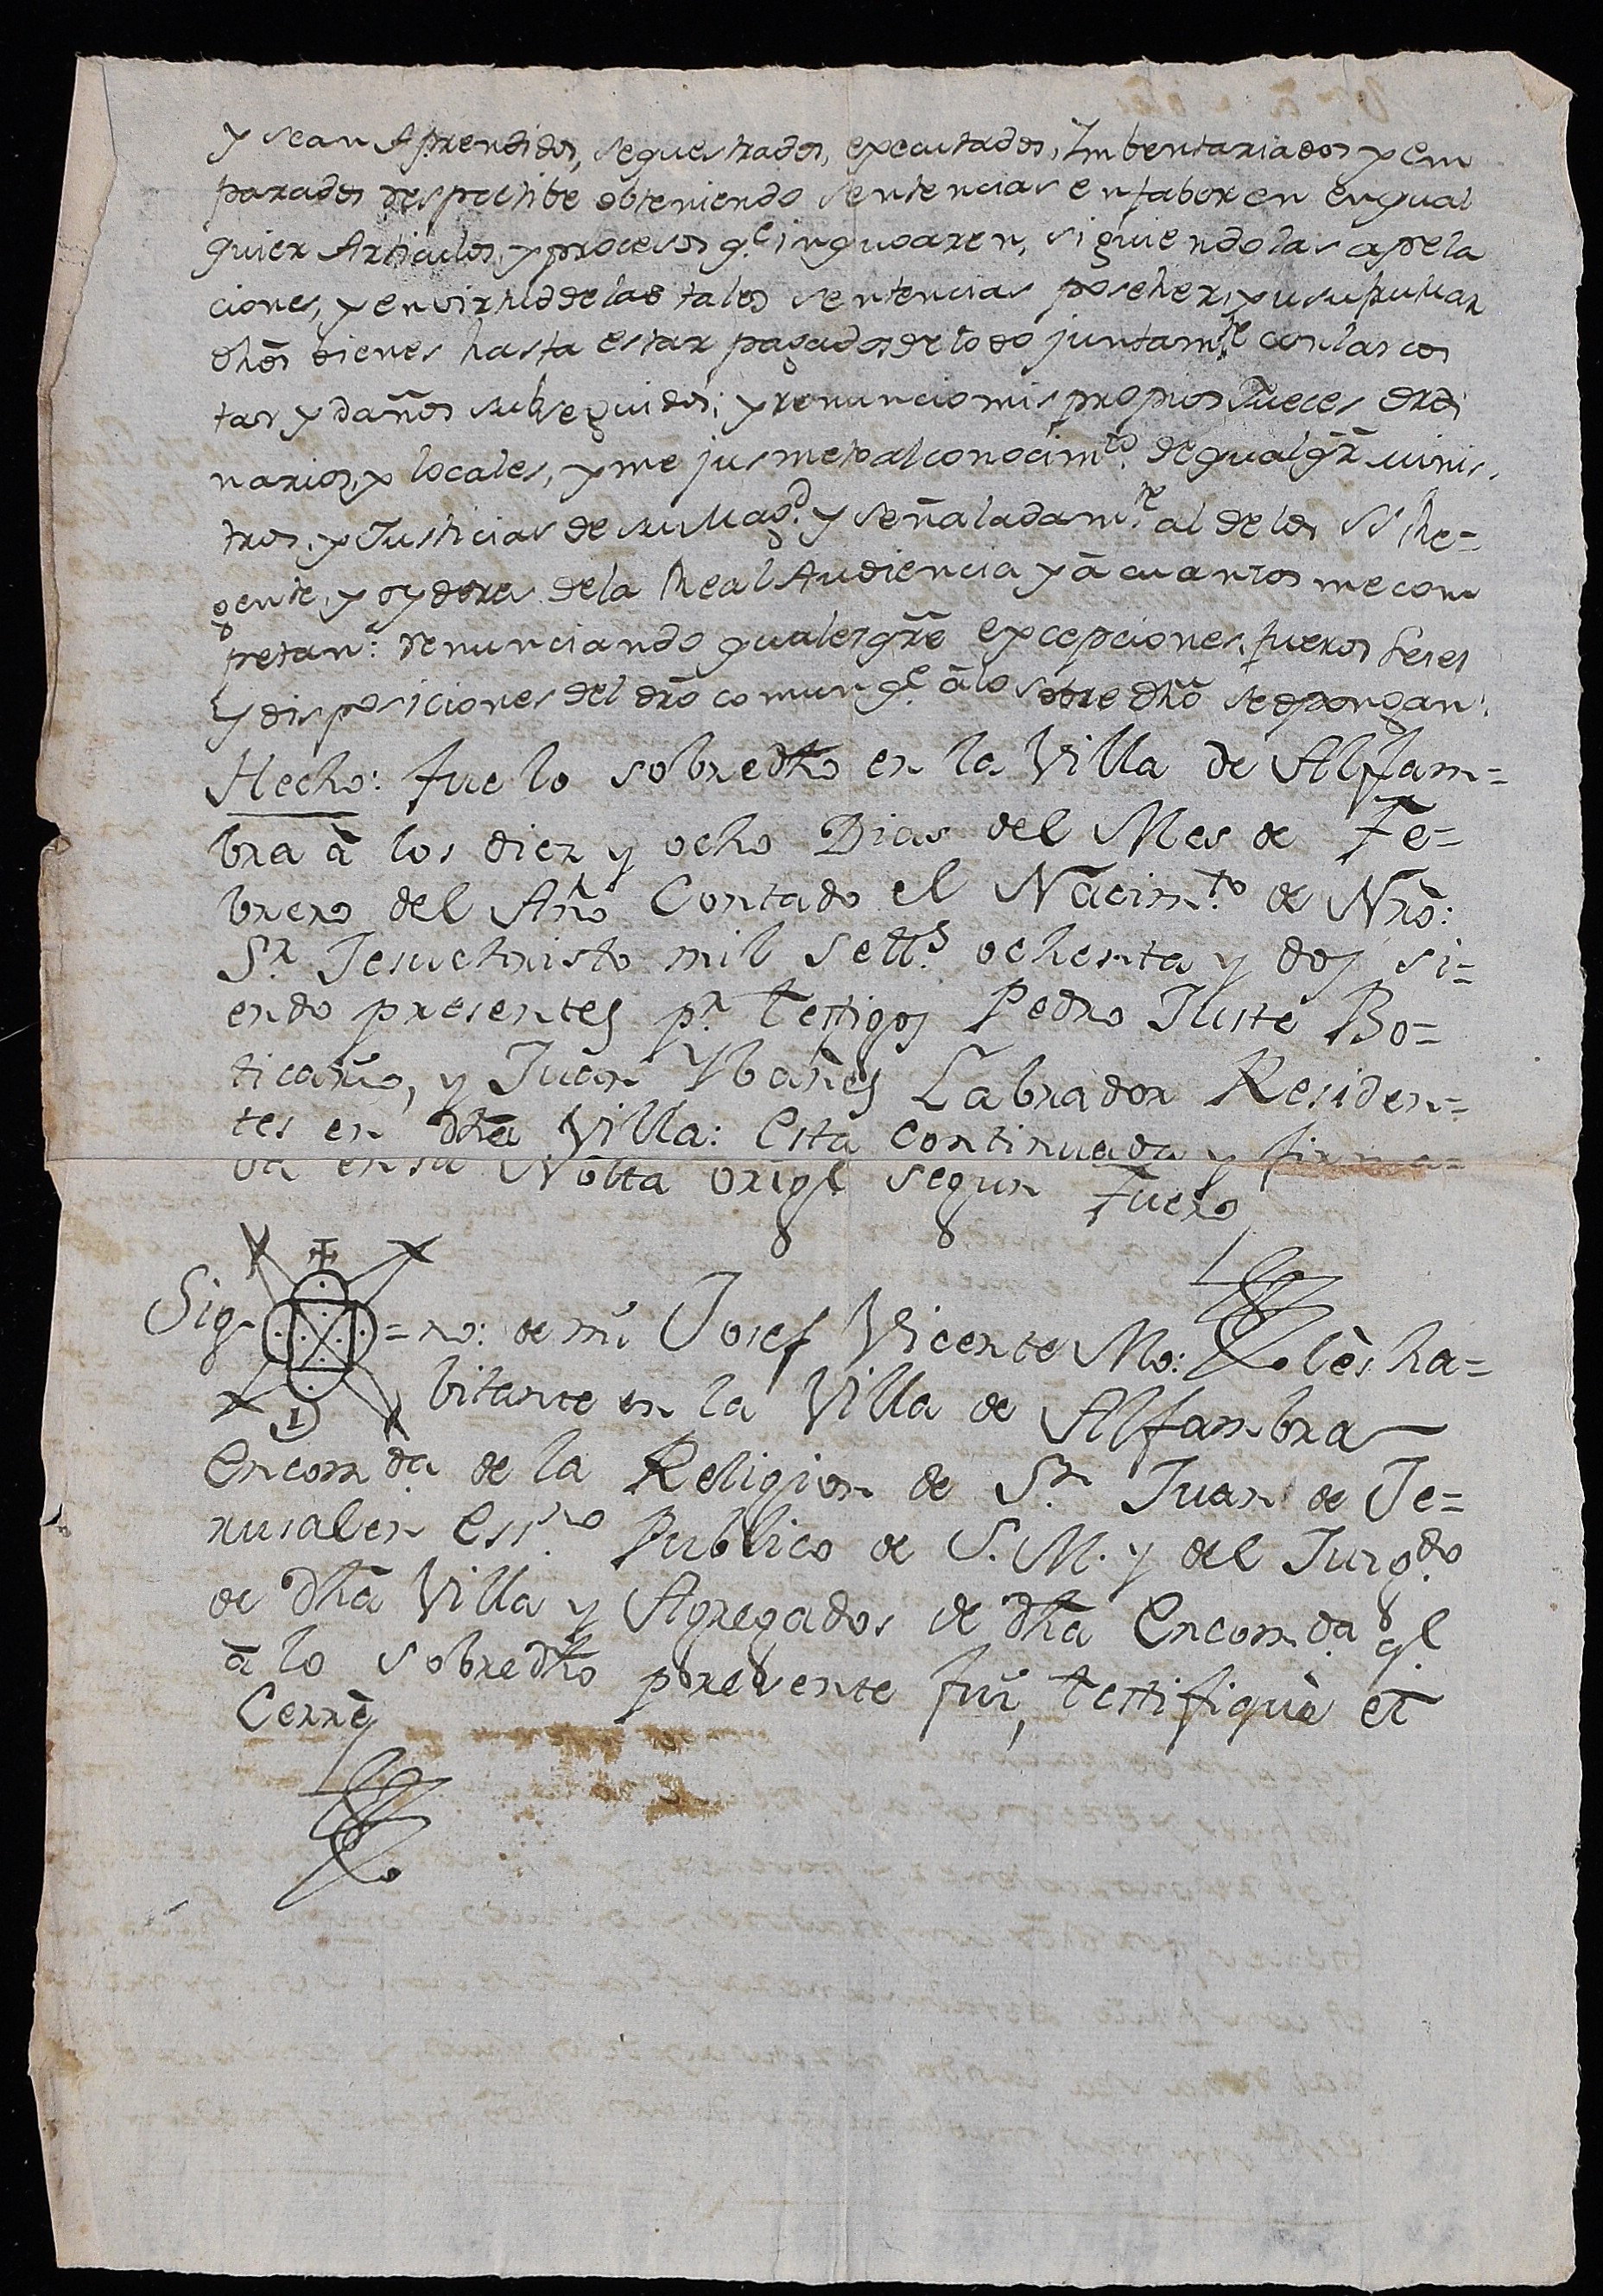 y sean Aprendidos, sequestrados, executados, Imbentariados y em
parados respectibe obteniendo sentencias en fabor en qual
quier Articulos, y procesos q.e incuoaren, siguiendo las apela
ciones, y en virtud de las tales sentencias poseher, y usufrutuar
dhôs bienes hasta estar pagados de todo juntam.te con las cos
tas y daños subseguidos; y renuncio mis propios Jueces ordi
narios, y locales, y me jusmeto al conocim.to de qualqr̃ minis-
tros, y Justicias de su Mag.d y señaladam.te al de los SS. Re=
gente, y oydores de la Real Audiencia y â cuantos me com
petan: renunciando qualesqr̃e excepciones, fueros Leies
y disposiciones del dr̃o comun q.e â lo sobre dhô se opongan.
Hecho: fue lo sobredhô en la Villa de Alfam=
bra â los diez y ocho Dias del Mes de Fe=
brero del Año Contado el Nacim.to de Nr̃o:
S.r Jesuchristo mil Sett.s ochenta y dos si=
endo presentes p.r testigos Pedro Juste Bo=
ticario, y Juan Ybañes Labrador Residen=
tes en dhâ Villa: Esta continuada y firma=
da en su Notta orig.l segun Fuero
Sig- =no: de mi Josef Vicente Mo: lès ha=
bitante en la Villa de Alfambra
Encom.da de la Religion de S.n Juan de Je=
rusalen Ess.no Publico de S. M. y del Juzg.do
de dhâ Villa y Agregados de dhâ Encom.da q.e
â lo sobredhô presente fui, testifiquè et
Cerrè